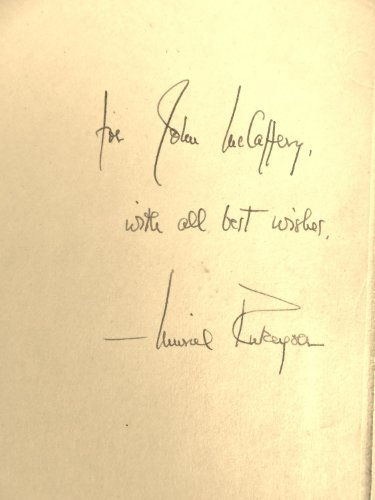 for John McCaffery,
with all best wishes,
—Muriel Rukeyser